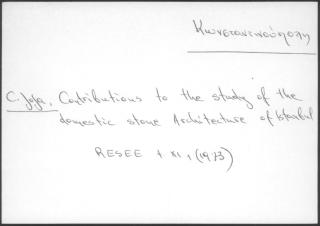 Κωνσταντινούπολη
C. Joja, Contributions to the study of the
domestic stone Architecture of Istanbul
RESEE t XI, (1973)